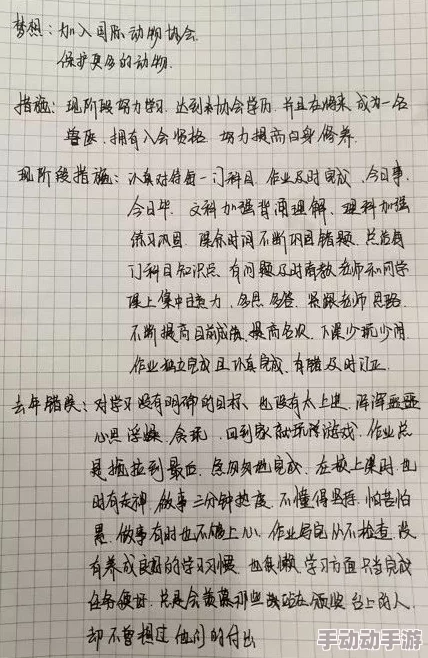 梦想：加入国际动物协会
保护更多的动物
措施：现阶段努力学习 达到本协会学历 并且在将来成为一名
兽医，拥有入会资格 努力提高自身修养
现阶段措施：认真对待每一门科目 作业及时完成 今日事，
今日毕 文科加强背诵理解，理科加强
练习巩固 课余时间不断巩固错题 总结每
门科目知识点 有问题及时请教老师和同学
课上集中注意力，多思多答 紧跟老师思路
不断提高目前成绩 提高名次，下课少玩少闹
作业独立完成且认真完成，有错及时订正
去年错误：对学习没有明确的目标、也没有太上进，浑浑噩噩
心思浮燥、贪玩，回到家就玩游戏，作业总
是拖拉到最后，急匆匆地完成，在校上课时也
时有走神，做事三分钟热度，不懂得坚持，怕苦怕
累，做事有时也不够上心，作业写完从不检查，没
有养成良好的学习习惯，也很懒，学习方面只当完成
任务便好，总是会羡慕那些站在领奖台上的人
却不曾想过他们的付出
手动动手游